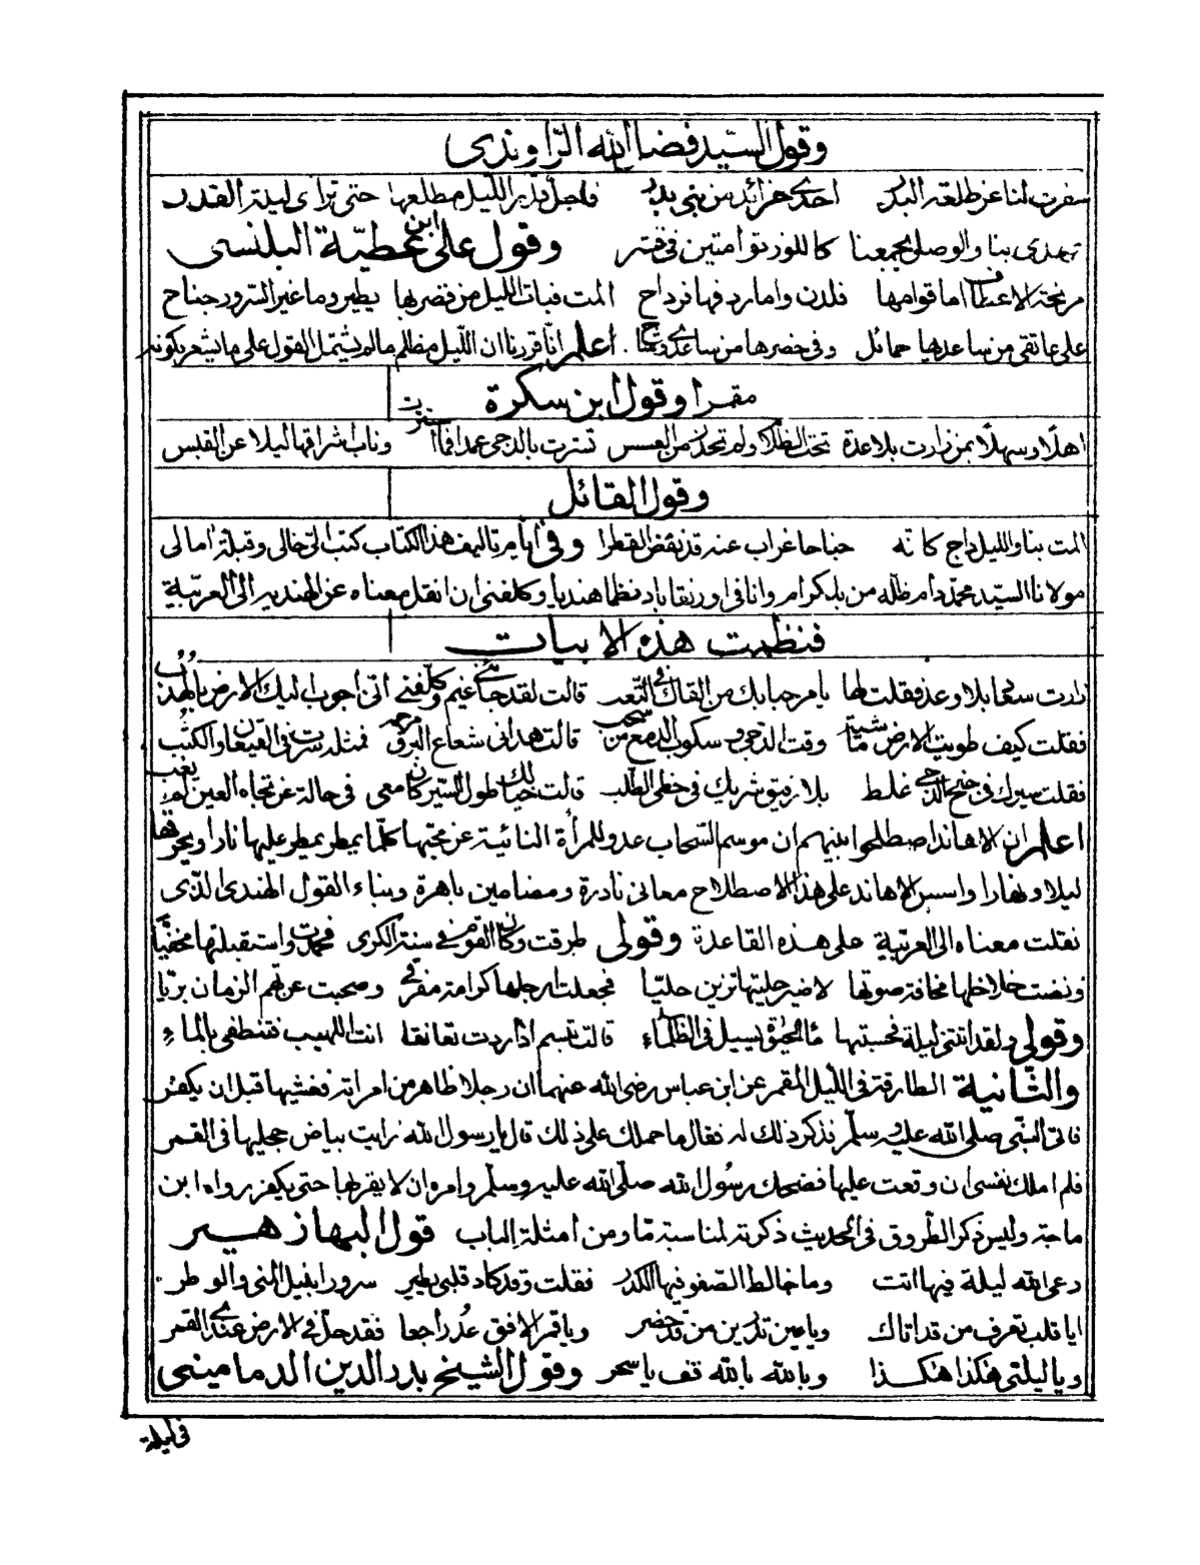 وقول السيد فضل الله الراوندى
سفرت لنا عن طلعة البدر احدى خرائد من بنى بدر فاجل بدر الليل مطلعها حتى تراى ليلة القدر
تهدى بنا والوصل يجمعنا كاللوز توامتين فى قشر وقول على ابن عطيّة البلنسى
مرنحة الاعطاف اما قوامها فلدن واما ردفها فرداح المت فبات الليل من قصرها يطير وما غير السرور جناح
على عاتقى من ساعديها حمائل وفى خصرها من ساعدى وشاح . اعلم انّا قررنا ان الليل مظلم مالم يشتمل القول على ما يشعر بكونه
مقمرا وقول ابن سكرة
اهلا وسهلا بمن زارت بلا عدة تحت الظلام ولم تحذر من العسس تسترت بالدجى عمدا فما استترت وناب اشراقها ليلا عن القبس
وقول القائل
المت بنا والليل داج كانه جناحا غراب عنه قد نفض القطرا وفى ايام تاليف هذا الكتاب كتب الىّ خالى وقبلة امالى
مولانا السيد محمد دام ظله من بلكرام وانا فى اورنقاباد نظما هنديا وكلفنى ان انقل معناه عن الهندية الى العربية
فنظمت هذه الابيات
زارت سعاد بلا وعد فقلت لها يا مرحبا بك من القاك فى التعب قالت لقد جاءنى غيم وكلّفنى انى اجوب اليك الارض بالهدب
فقلت كيف طويت الارض ماشية وقت الدجى وسكوب الدمع من سحب قالت هدانى شعاع البرق مرحمة فمثله سرت فى القيعان والكثب
فقلت سيرك فى جنح الدجى غلط بلا رفيق شريك فى خطى الطلب قالت خيالك طول السير كان معى فى حالة عن تجاه العين لم يغب
اعلم ان الاهاند اصطلحوا بينهم ان موسم السحاب عدو للمرأة النائية عن محبها كلما يمطر يمطر عليها نارا ويحرقها
ليلا ونهارا واسس الاهاند على هذا الاصطلاح معانى نادرة ومضامين باهرة وبناء القول الهندى الذى
نقلت معناه الى العربية على هذه القاعدة وقولى طرقت وكان القوم فى سنة الكرى فحمدت واستقبلتها مخفيّا
ونضت خلاخلها مخافة صوتها لا ضير حليتها تزين حليّا فجعلت ارجلها كرامة مفرقى وصحبت عن قم الزمان بريّا
وقولى ولقد اتتنى ليلة فحسبتها ماء الحيوة يسيل فى الظلماء قالت تبسم اذ اردت تعانقا انت اللهيب فتنطفى بالماء
والثّانية الطارقة فى الليل المقمر عن ابن عباس رضى الله عنهما ان رجلا ظاهر من امراته فغشيها قبل ان يكفر
فاتى النبى صلى الله عليه وسلم فذكر ذلك له فقال ما حملك على ذلك قال يا رسول الله رايت بياض حجليها فى القمر
فلم املك نفسى ان وقعت عليها فضحك رسول الله صلى الله عليه وسلم وامره ان لا يقربها حتى يكفر رواه ابن
ماجة وليس ذكر الطروق فى الحديث ذكرته لمناسبة ما ومن امثلة الباب قول البهاز هير
رعى الله ليلة فيها انت وما خالط الصفو فيها الكدر فقلت وقد كاد قلبى يطير سرورا بنيل المنى والوطر
ايا قلب تعرف من قد اتاك ويا عين تدرين من قد حضر ويا قمر الافق عد راجعا فقد حل فى الارض عندى القمر
ويا ليلتى هكذا هكذا وبالله بالله قف يا سحر وقول الشيخ بدر الدين الدمامينى
فى ليلة